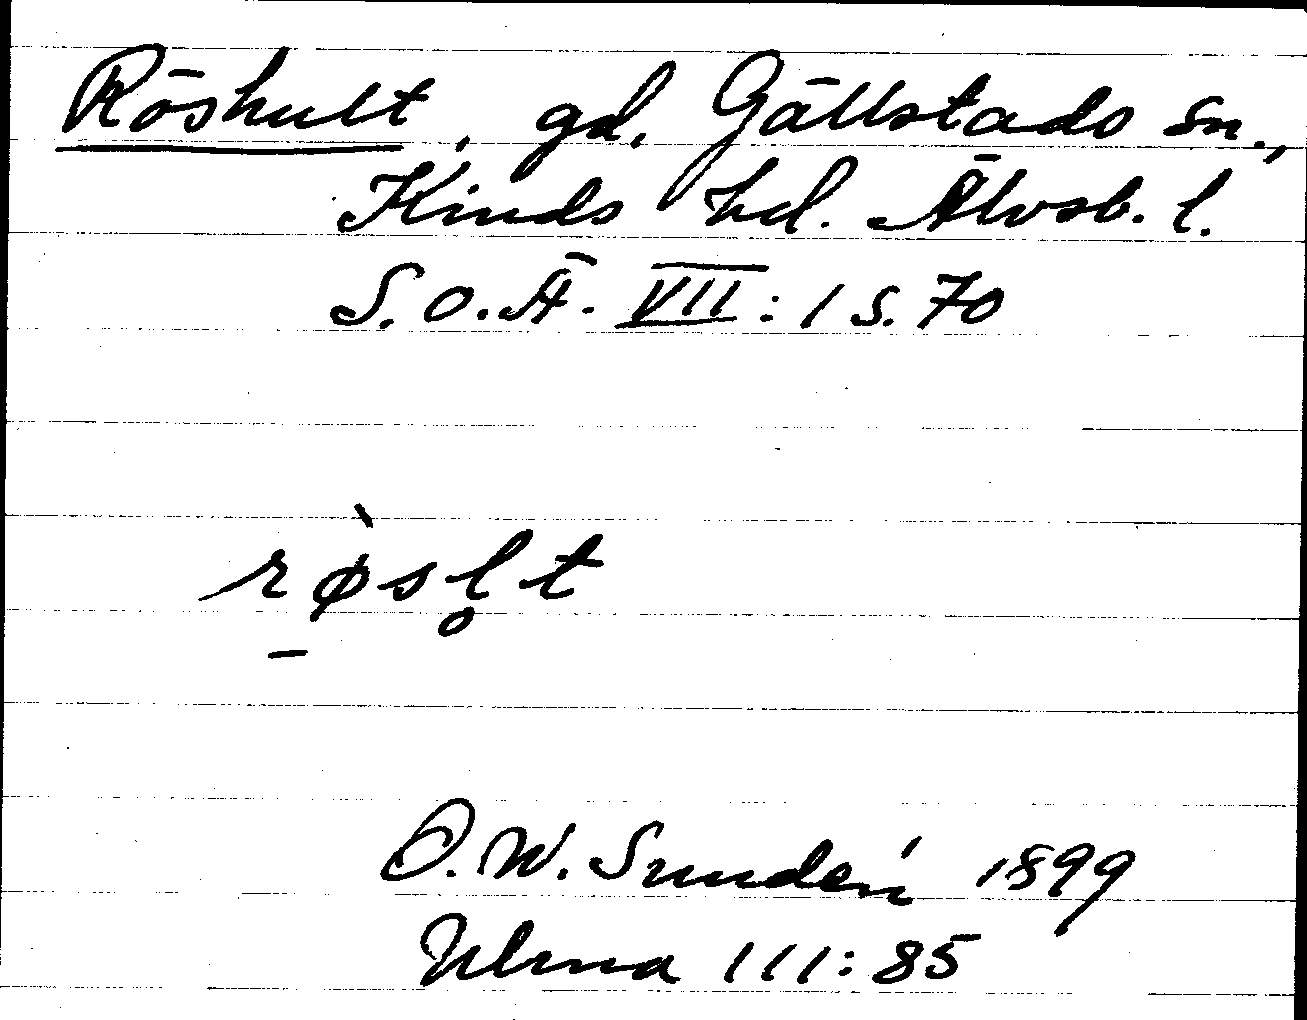 Röshult, gd. Gällstads sn.,
Kinds hd. Älvsb. l.
S.O.Ä. VII: 1 s. 70
rø̀sl̥t
O. W. Sundén 1899
Ulma 111:85